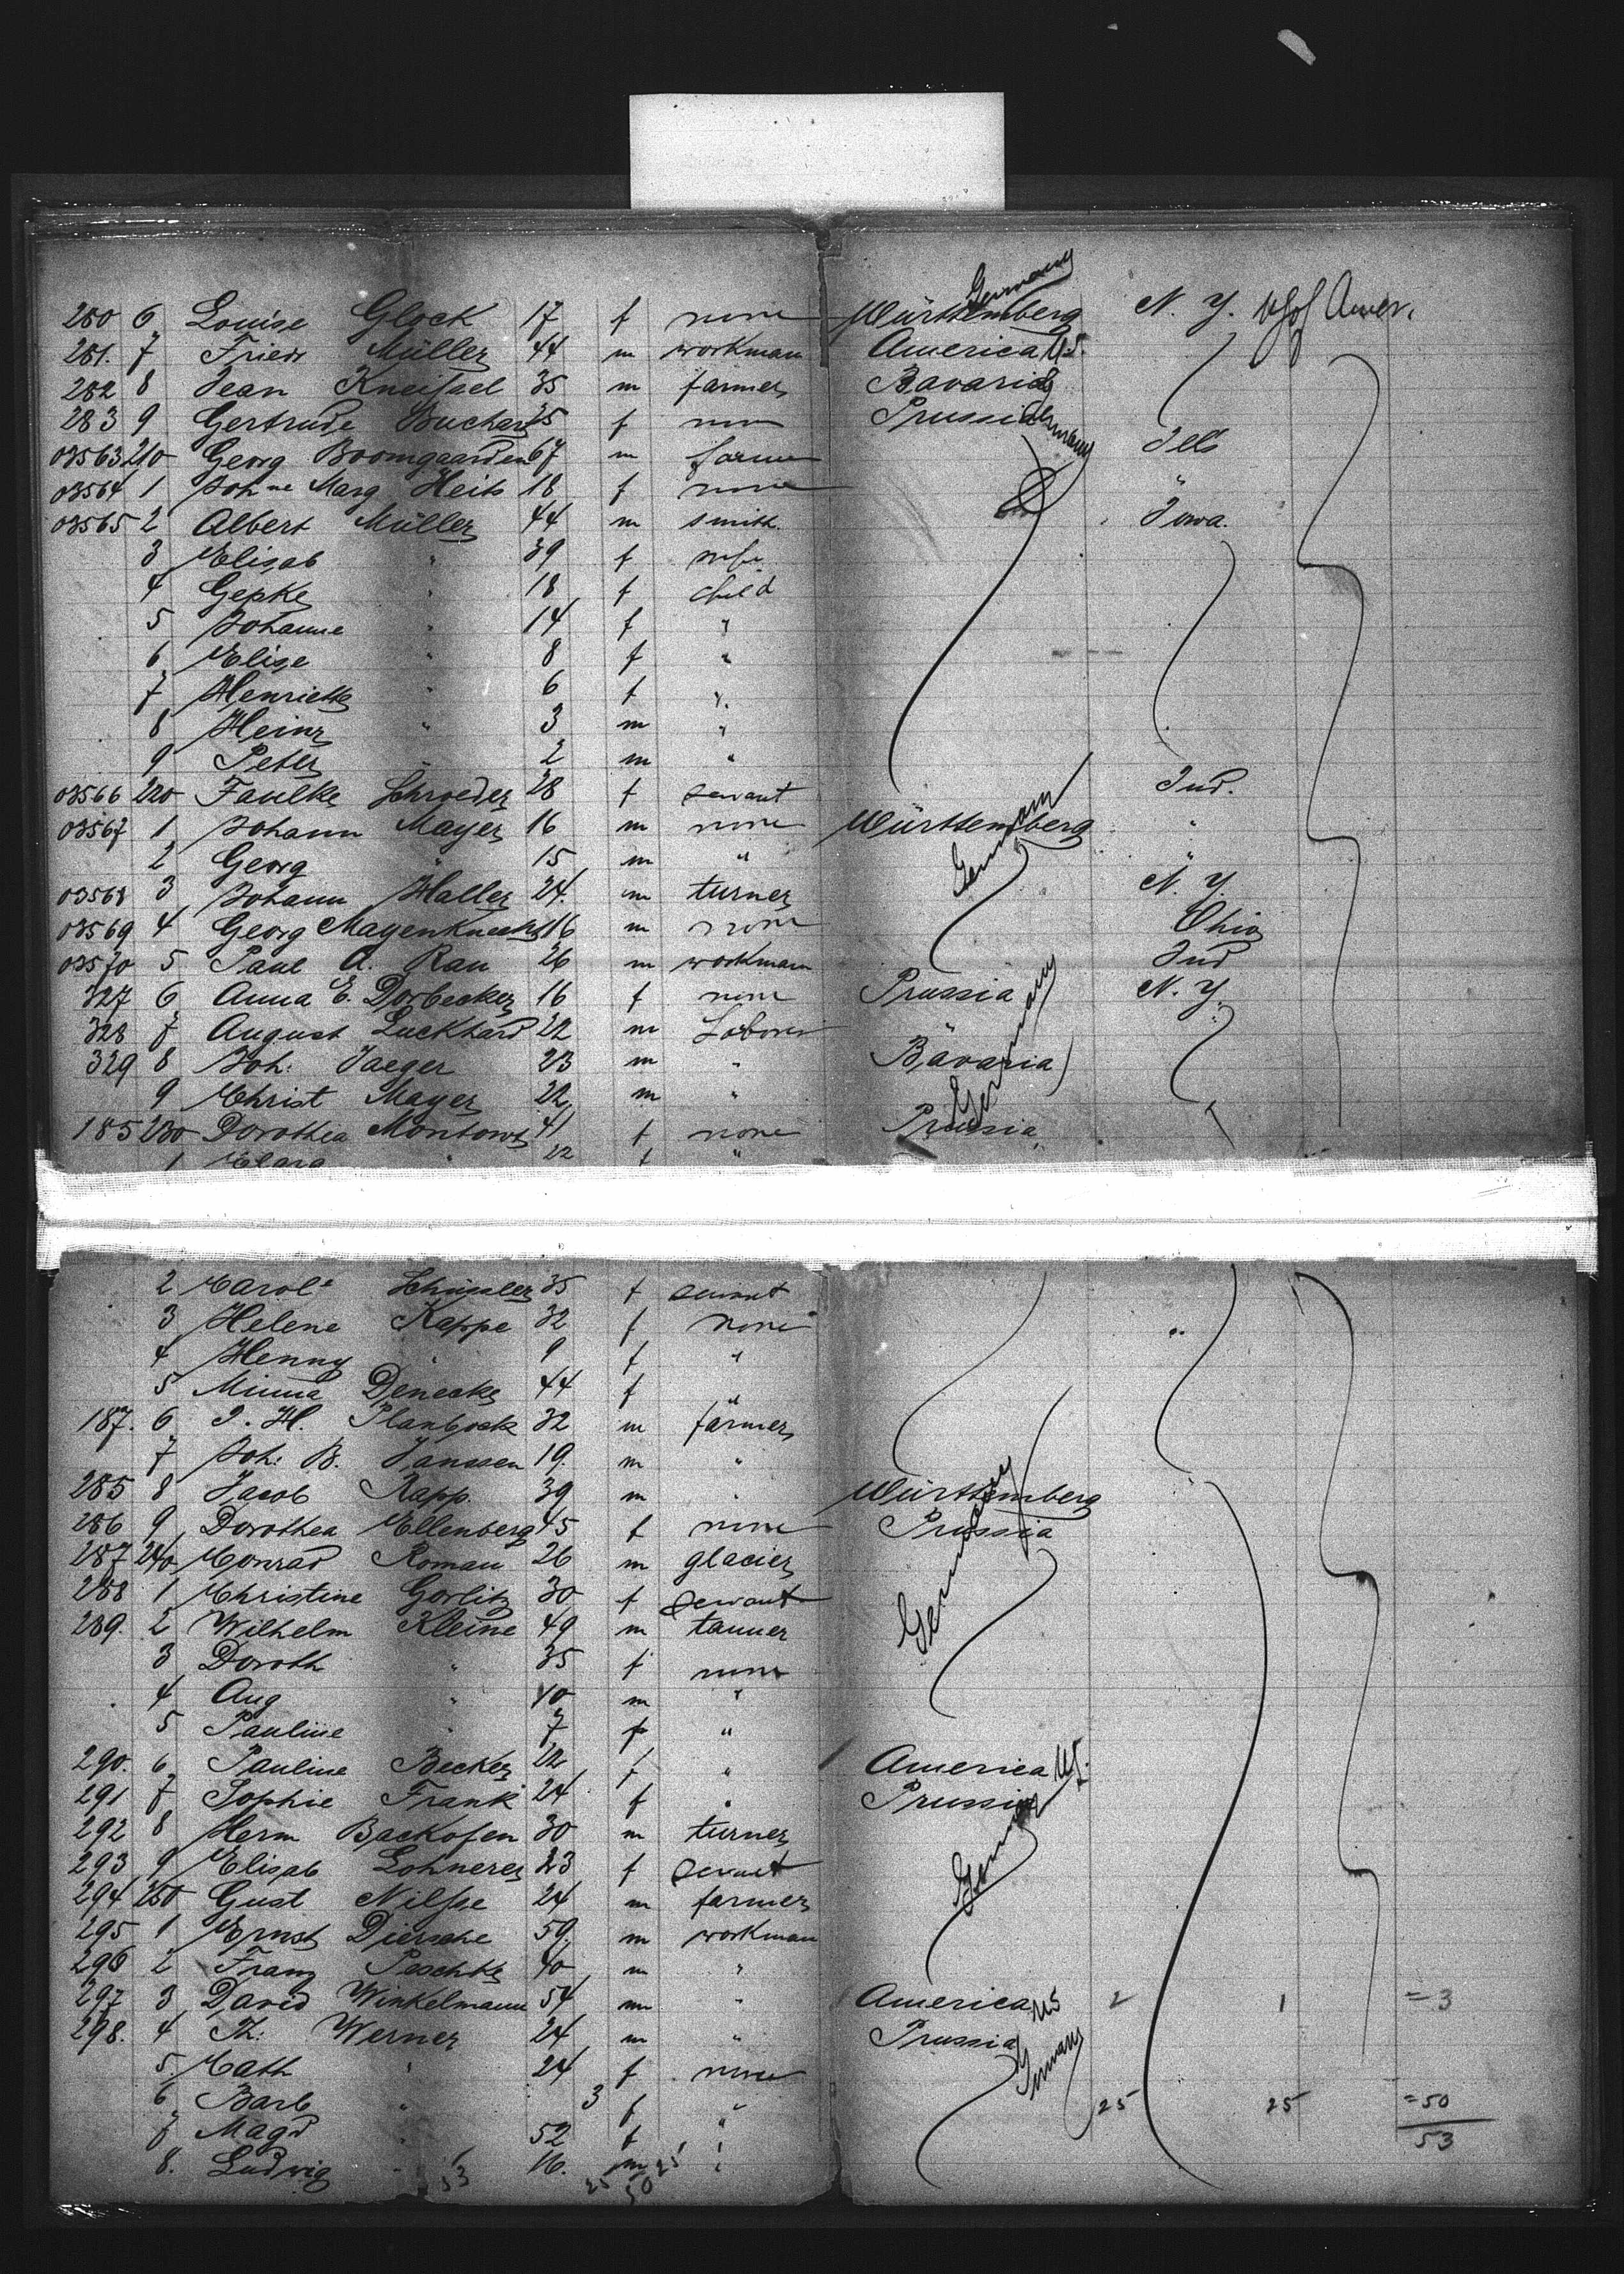 Germany
280 6 Louise Glock 17 f none Württemberg N. Y. U S of Amer.
281. 7 Friedr Müller 44 m workman America U.S.
282 8 Jean Kneissel 35 m farmer Bavaria
283 9 Gertrude Buchar 25 f none Prussia Germany
03563 210 Georg Boomgaarden 67 m farmer Ills
03564 1 Joh ne Marg Heits 18 f none "
03565 2 Albert Müller 44 m smith Iowa.
3 Elisab " 39 f wife
4 Gepke " 18 f child
5 Johanne " 14 f "
6 Elise " 8 f "
7 Henriette " 6 f "
8 Heinr " 3 m "
9 Peter " 2 m "
03566 220 Faulke Schroeder 28 f servant Ind.
03567 1 Johann Mayer 16 m none Württemberg "
2 Georg " 15 m " Germany "
03568 3 Johann Haller 24. m turner N. Y.
03569 4 Georg Mayenknecht 16 m none Ohio
03570 5 Paul A. Rau 26 m workman Ind
327 6 Anna E. Dorbecker 16 f none Prussia N. Y.
328 7 August Luckhard 22 m Laborer " Germany
329 8 Joh: Jaeger 23 m " Bavaria
9 Christ Mayer 22 m " Germany
185 230 Dorothea Montowt 41 f none Prussia
1 Clara " 22 f "
2 Carol e Schüssler 35 f servant
3 Helene Kappe 32 f none "
4 Henny " 9 f "
5 Minna Denecke 44 f "
187. 6 J. H. Planbock 32 m farmer
7 Joh: B. Janssen 19. m "
285 8 Jacob Rapp. 39 m " Württemberg
286 9 Dorothea Ellenberg 45 f none Prussia
287 240 Conrad Roman 26 m glacier Germany
288 1 Christine Gorlitz 30 f servant
289. 2 Wilhelm Kleine 49 m tanner
3 Doroth " 35 f none
4 Aug " 10 m "
5 Pauline " 7 f "
290. 6 Pauline Becker 22 f " America U.S.
291 7 Sophie Frank 24 f " Prussia
292 8 Herm Backofen 30 m turner Germany
293 9 Elisab Lohnerer 23 f servant
294 250 Gust Nilsse 24 m farmer
295 1 Ernst Diersche 59. m workman
296 2 Franz Peschke 40 m "
297 3 David Winkelmann 54 m " America U S 2 1 = 3
298. 4 Th: Werner 24 m " Prussia
5 Cath " 24 f none Germany
6 Barb " 3 f " 25 25 = 50
7 Magd " 52 f " 53
8. Ludwig " 16. m "
53 25 50 25